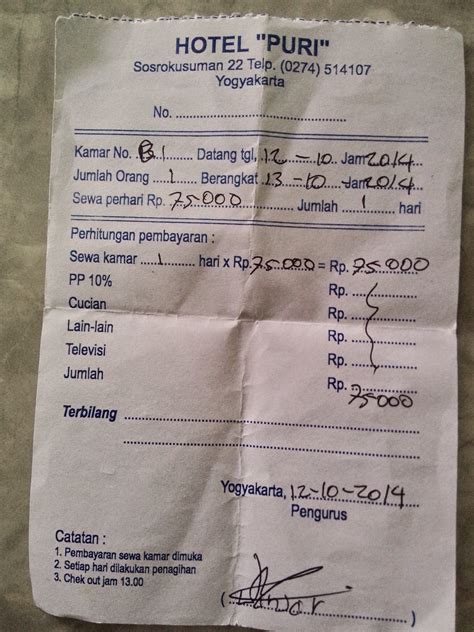 HOTEL "PURI"
Sosrokusuman 22 Telp. (0274) 514107
Yogyakarta
No. ........................................
Kamar No. B1 Datang tgl, 12-10 Jam 2014
Jumlah Orang 1 Berangkat 13-10 Jam 2014
Sewa perhari Rp. 75.000 Jumlah 1 hari
Perhitungan pembayaran :
Sewa kamar 1 hari x Rp. 75.000 = Rp. 75.000
PP 10% Rp.
Cucian Rp.
Lain-lain Rp.
Televisi Rp.
Jumlah Rp. 75000
Terbilang
Yogyakarta, 12-10-2014
Pengurus
Catatan :
1. Pembayaran sewa kamar dimuka
2. Setiap hari dilakukan penagihan
3. Chek out jam 13.00